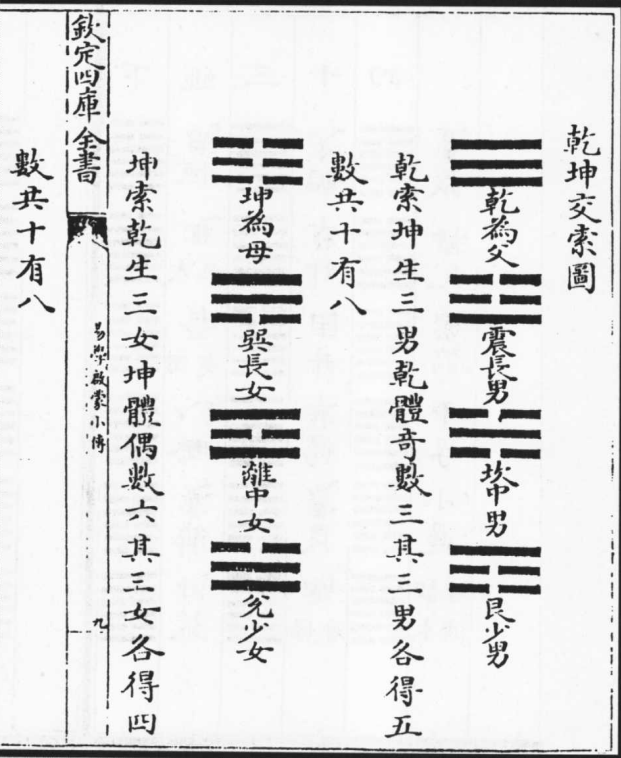 乾坤交索圖
乾為父 震長男 坎中男 艮少男
乾索坤生三男乾體奇數三其三男各得五
數共十有八
坤為母 巽長女 離中女 兌少女
坤索乾生三女坤體偶數六其三女各得四
欽定四庫全書
易學啟蒙小傳
九
數共十有八